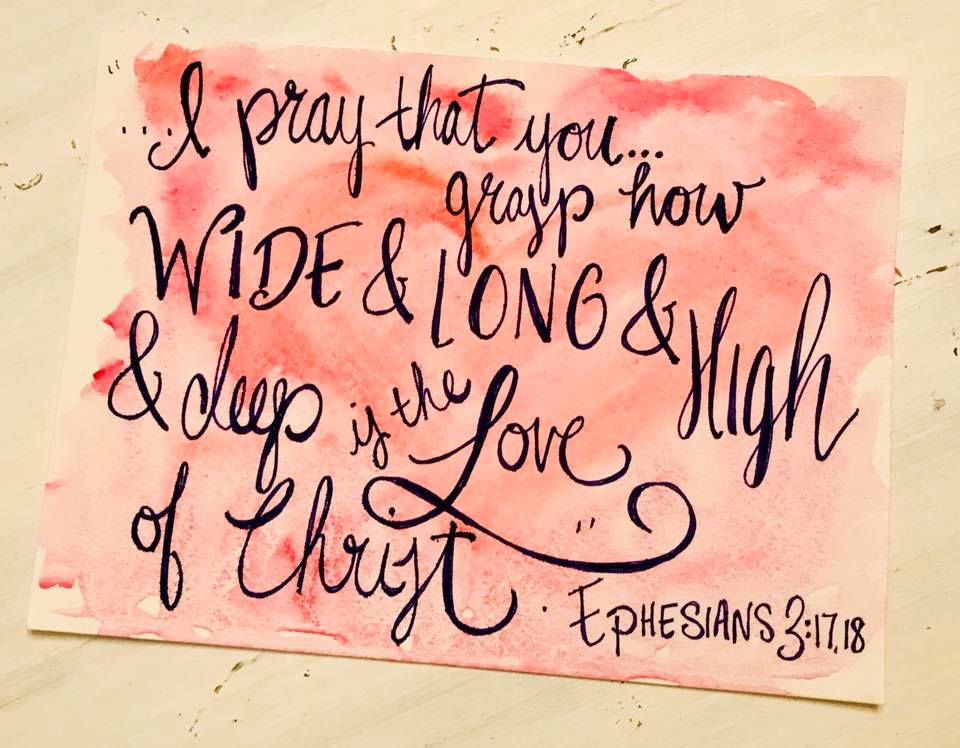 ...I pray that you...
grasp how
WIDE & LONG & High
& deep is the Love
of Christ."
EPHESIANS 3:17,18